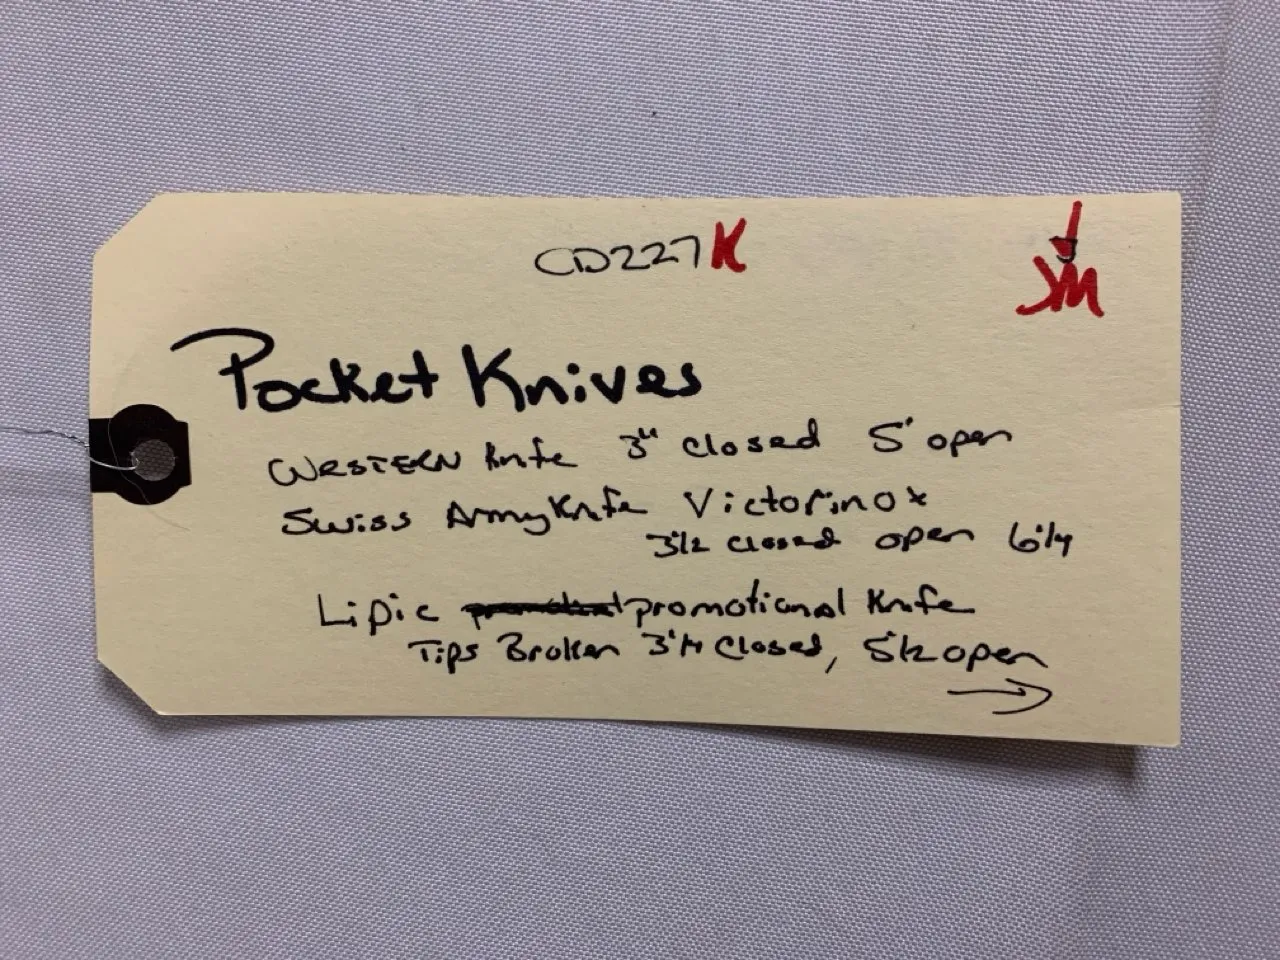 CD227K
JM
Pocket Knives
WESTERN Knife 3" closed 5" open
Swiss Army Knife Victorinox
3 1/2 closed open 6 1/4
Lipic promotional Knife
Tips Broken 3 1/4 Closed, 5 1/2 open
→